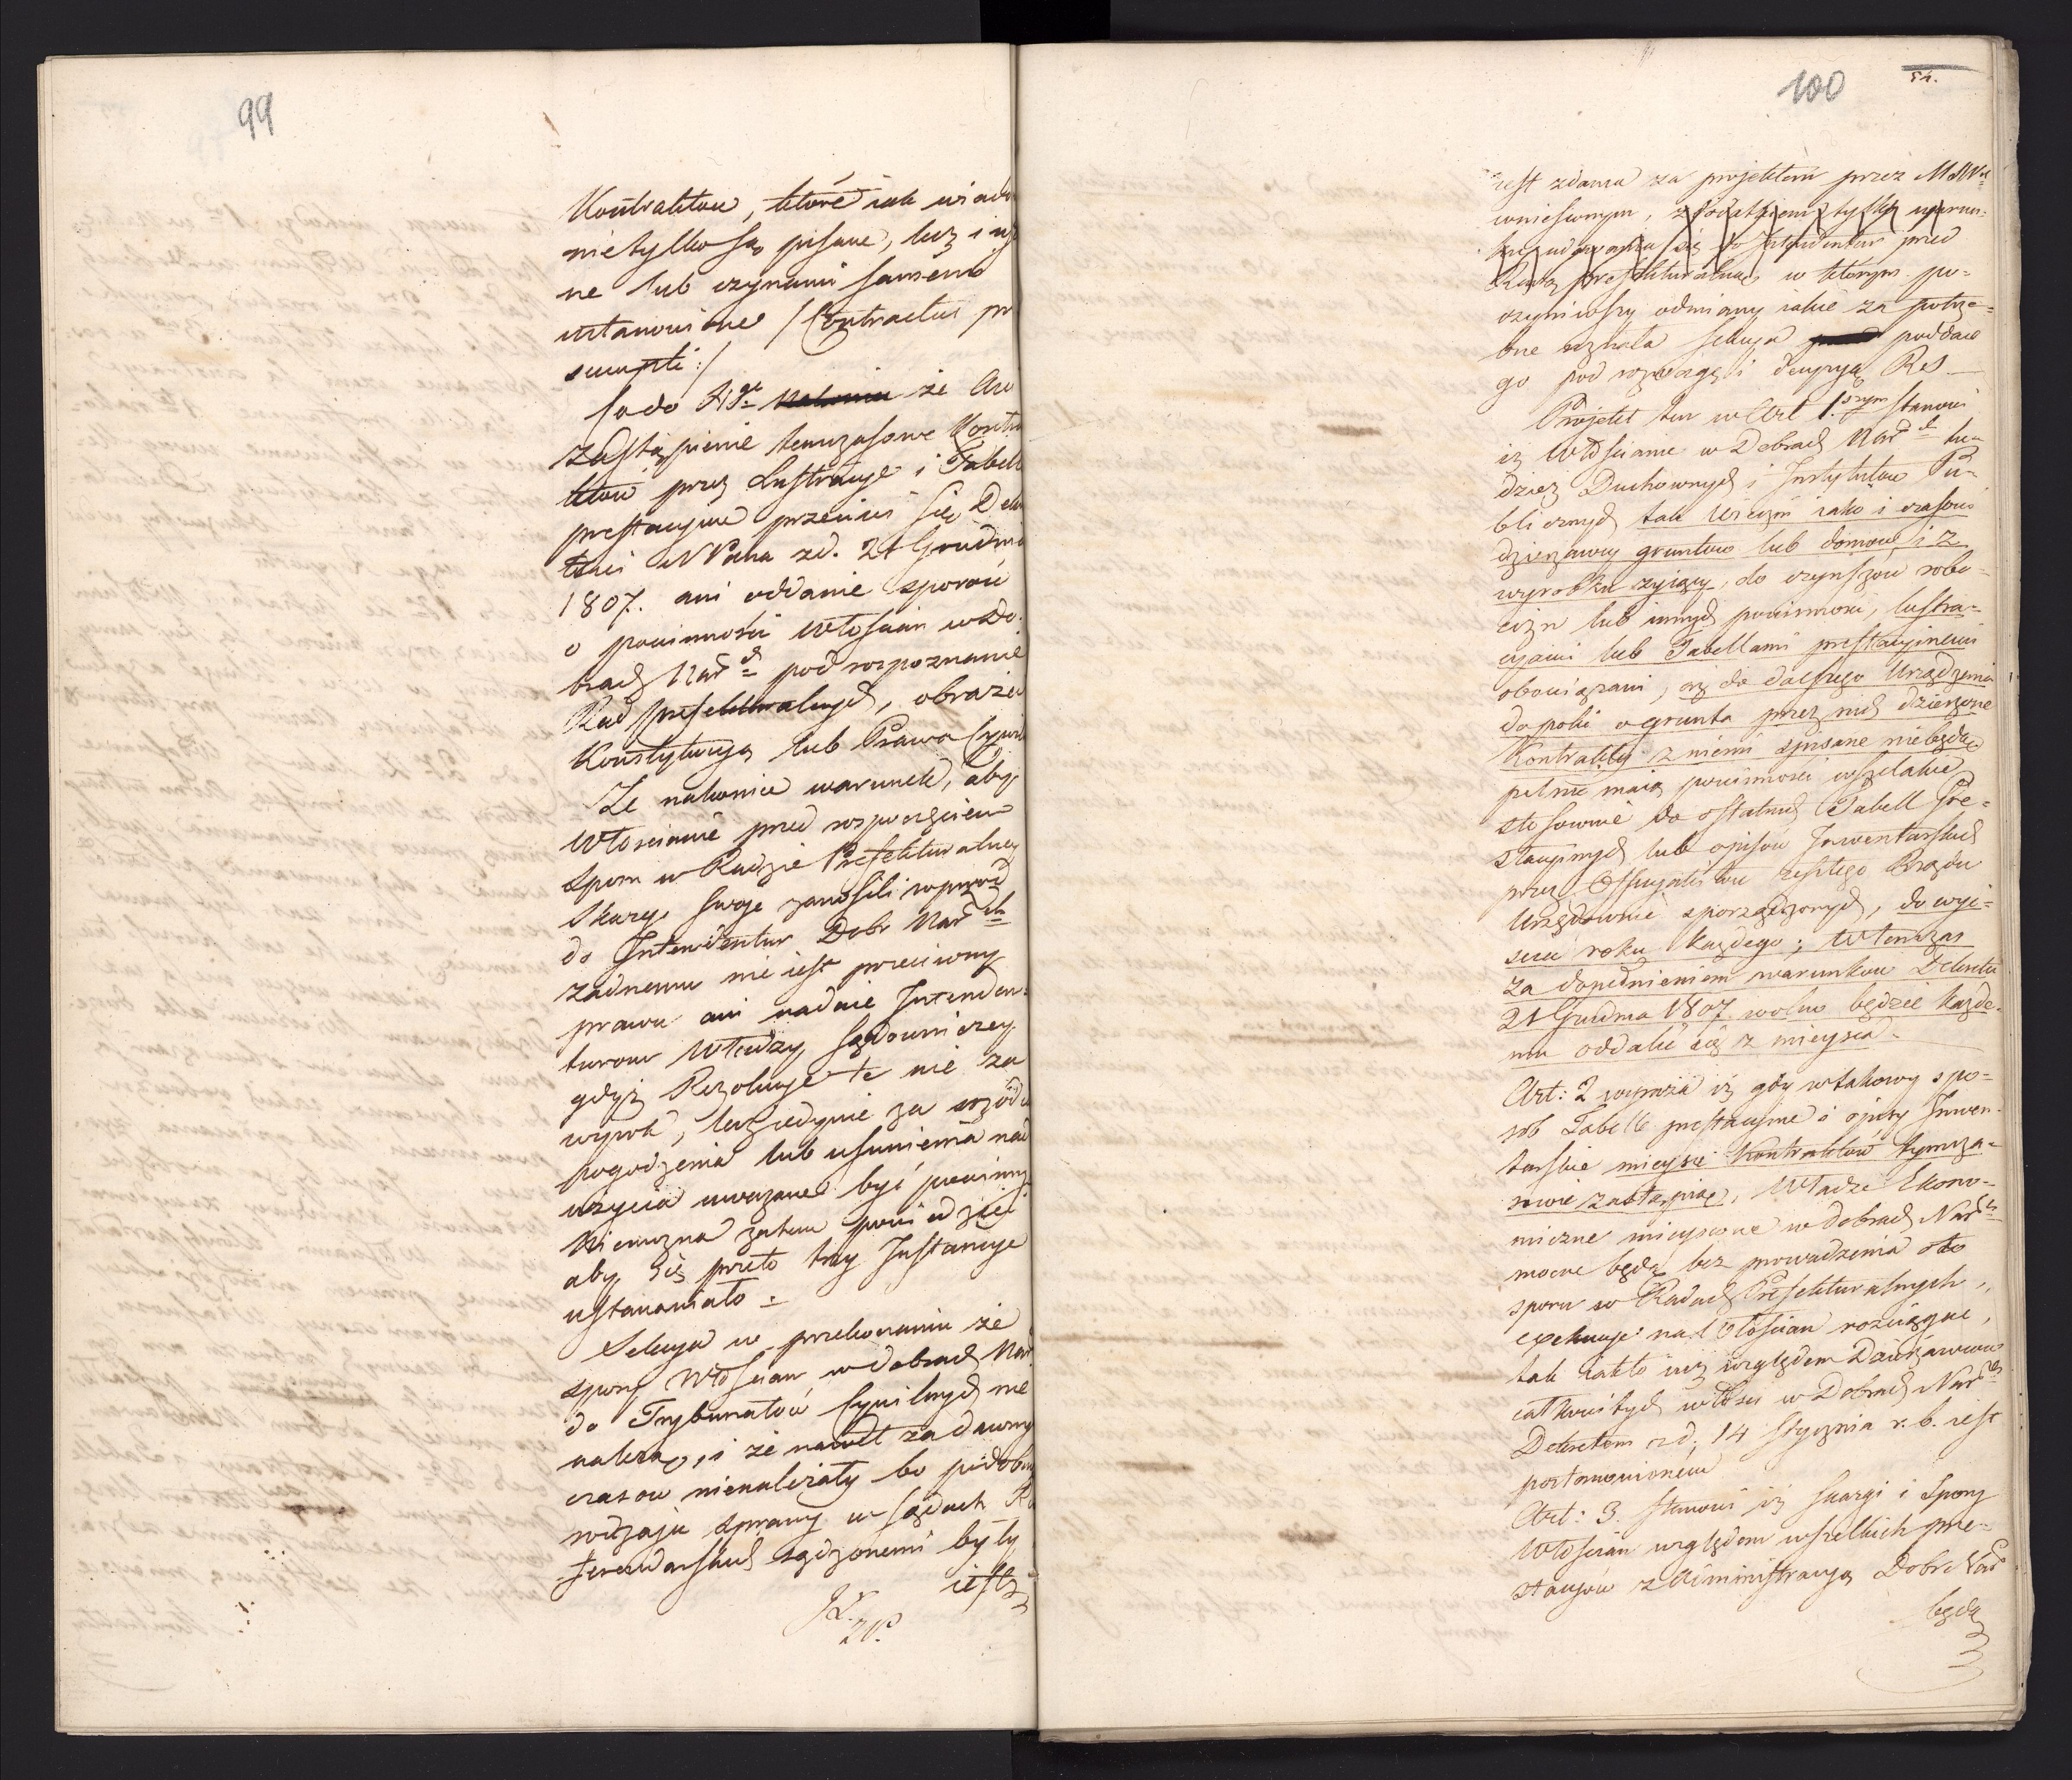 99
Kontraktow, które iak wiado
nietylko są pisane, lecz i u
ne lub czynami samemi
ustanowione /:Contractus pr
sumpti:/
Co do II<sup>go</sup> że Au
zastąpienie tymczasowe Kontra
któw przez Lustracye i Tabell
prestacyjne przeciwi się Dekre
towi NPana zd. 21 Grudnia
1807. ani oddanie sporów
o powinności Włościan w Do-
brach Nar<sup>ch</sup> pod rozpoznanie
Rad prefekturalnych, obraża
Konstytucyą lub Prawa Cywil
Że nakoniec warunek, aby
Włościanie przed rozpoczęciem
sporu w Radzie Prefekturalney
skargi swoje zanosili wprzód
do Intendentur Dobr Nar<sup>ch</sup>
żadnemu nie iest przeciwny
prawu ani nadaie Intenden-
turom Władzy sądowniczey
gdyż Rezolucye te nie za
wyrok, lecz iedynie za srzodek
pogodzenia lub usunienia nad
użycia uważane być powinny
Niemożna zatem powiedzieć
aby się przeto trzy Instancye
ustanawiało.
Sekcya w przekonaniu że
spory Włościan w dobrach Nar.
do Trybunałów Cywilnych nie
należą, i że nawet za dawnych
czasow nienależały bo podobne
rodzaju sprawy w sądach Re
ferendarskich sądzonemi były
iest
100
54.
iest zdania za projektem przez MSW<sup>ra</sup>
wniesionym, z dodatkiem tylko warun-
ku udawania się do Intendentur przed
Radą prefekturalną w którym po-
czyniwszy odmiany iakie za potrze-
bne uznała Sekcya poddaie
go pod rozwagę i decyzyą RS —
Projekt ten w Art 1.<sup>szym</sup> stanowi
iż Włościanie w Dobrach Nar<sup>ch</sup> tu-
dzież Duchownych i Instytutow Pu-
blicznych tak wieczni iako i czasowi
dzierzawcy gruntow lub domow i z
wyrobku żyiący, do czynszow robo-
cizn lub innych powinności, lustra-
cyami lub Tabellami prestacyinemi
obowiązani, aż do dalszego Urządzenia
dopoki o grunta przez nich dzierzone
Kontrakty z niemi spisane niebędą,
pełnić maią powinności wszelakie
stosownie do ostatnich Tabell Pre-
stacyinych lub opisów Inwentarskich
przez Officyalistow zeszłego Rządu
Urzędownie sporządzonych, do wyi-
ścia roku każdego; Wtenczas
za dopełnieniem warunkow Dekretu
21 Grudnia 1807. wolno będzie każde-
mu oddalić się z mieysca.
Art: 2 wyraża iż gdy w takowy spo-
sob Tabelle prestacyine i opisy Inwen-
tarskie mieysce Kontraktów tymcza-
sowie zastąpią, Władze Ekono-
miczne mieyscowe w dobrach Nar<sup>ch</sup>
mocne będą bez prowadzenia o to
sporu w Radach Prefekturalnych,
exekucye na Włościan rozciągać,
tak iak to iuż względem Dzierzawcow
całkowitych włości w Dobrach Nar<sup>ch</sup>
Dekretem zd. 14 Stycznia r. b. iest
postanowionem
Art: 3. stanowi iż skargi i Spory
Włościan względem wszelkich pre-
stacyów z Administracyą Dobr Nar<sup>ch</sup>
będą